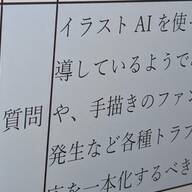 質問
イラスト AI を使
導しているようで
や、手描きのファン
発生など各種トラ
を一本化するべき